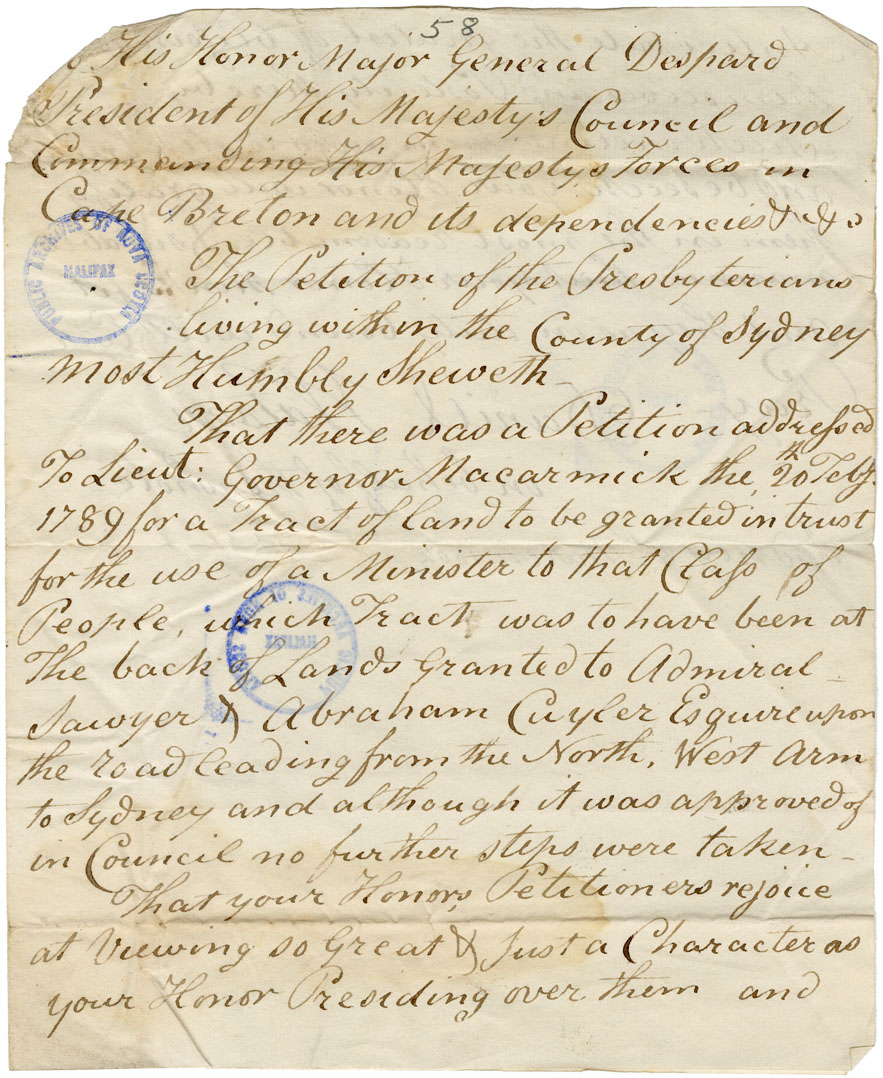 58
To His Honor Major General Despard
President of His Majesty's Council and
Commanding His Majestys Forces in
Cape Breton and its dependencies & &c
The Petition of the Presbyterians
living within the County of Sydney
most Humbly Sheweth
That there was a Petition addressed
To Lieut: Governor Macarmick the 20th Feby.
1789 for a Tract of land to be granted in trust
for the use of a Minister to that Class of
People, which Tract was to have been at
The back of Lands Granted to Admiral
Sawyer & Abraham Cuyler Esquire upon
the road leading from the North, West Arm
to Sydney and although it was approved of
in Council no further steps were taken
That your Honors Petitioners rejoice
at Viewing so Great & Just a Character as
your Honor Presiding over them and
PUBLIC ARCHIVES OF NOVA SCOTIA
HALIFAX
PUBLIC ARCHIVES OF NOVA SCOTIA
HALIFAX